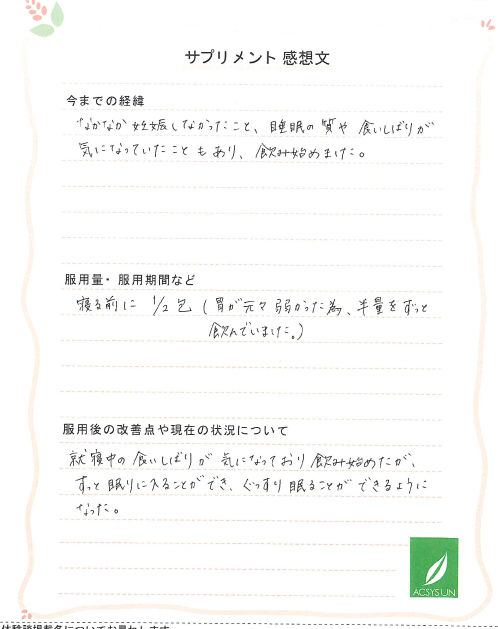 サプリメント 感想文
今までの経緯
なかなか妊娠しなかったこと、睡眠の質や 食いしばりが
気になっていたこともあり、飲み始めました。
服用量・服用期間など
寝る前に 1/2包 (胃が元々弱かった為、半量をずっと
飲んでいました。)
服用後の改善点や現在の状況について
就寝中の食いしばりが 気になっており飲み始めたが、
すっと眠りに入ることができ、ぐっすり眠ることができるように
なった。
ACSYSUN
体験談掲載名についてお尋ねします